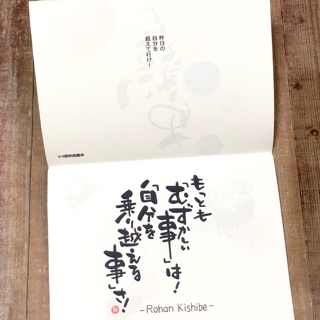 昨日の
自分を
超えて行け!
もっとも
「むずかしい
事」は!
「自分を
乗り越える
事」さ!
-Rohan Kishibe-